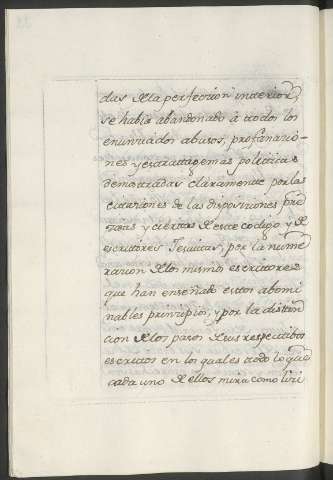 das de la perfeccion interior,
se habia abandonado à todos los
enunciados abusos, profanacio-
nes y estratagemas politicas
demostradas claramente por las
citaciones de las disposiciones pre
cisas y ciertas de este codigo y de
escritores Jesuitas, por la nume
racion de los mismos escritores
que han enseñado estos abomi
nables principios, y por la distin
cion de los pasos de sus respectibos
escritos en los quales todo lo que
cada uno de ellos mira como lici